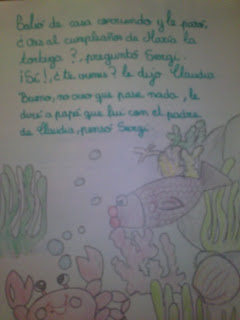 Salió de casa corriendo y le pasó,
¿Vas al cumpleaños de María la
tortuga?, preguntó Sergi.
¡Sí!, ¿te vienes? le dijo Claudia
Bueno, no creo que pase nada, le
diré a papá que fui con el padre
de Claudia, pensó Sergi.